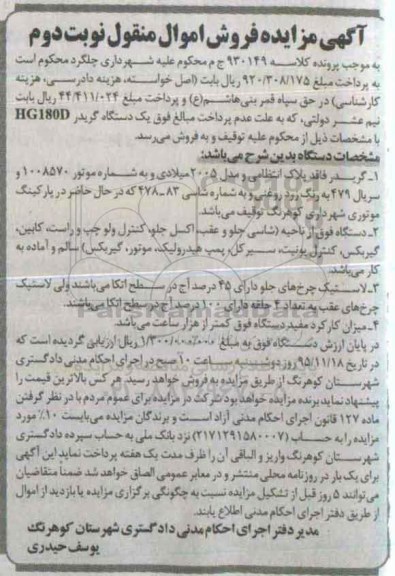 آگهی مزایده فروش اموال منقول نوبت دوم
به موجب پرونده کلاسه ۹۳۰۱۴۹ ج م محکوم علیه شهرداری چلگرد محکوم است
به پرداخت مبلغ ۹۲۰/۳۰۸/۱۷۵ ریال بابت (اصل خواسته، هزینه دادرسی، هزینه
کارشناسی) در حق سپاه قمر بنی هاشم(ع) و پرداخت مبلغ ۴۴/۴۱۱/۰۲۴ ریال بابت
نیم عشر دولتی، که به علت عدم پرداخت مبالغ فوق یک دستگاه گریدر HG180D
با مشخصات ذیل از محکوم علیه توقیف و به فروش می‌رسد.
مشخصات دستگاه بدین شرح می‌باشد:
۱- گریدر فاقد پلاک انتظامی و مدل ۲۰۰۵ میلادی و به شماره موتور ۱۰۰۸۵۷۰ و
سریال ۴۷۹ به رنگ زرد روغنی و به شماره شاسی ۸۳-۴۷۸ که در حال حاضر در پارکینگ
موتوری شهرداری کوهرنگ توقیف می‌باشد.
۲- دستگاه فوق از ناحیه (شاسی جلو و عقب، اکسل جلو، کنترل ولو چپ و راست، کابین،
گیربکس، کنترل یونیت، سیرکل، پمپ هیدرولیک، موتور، گیربکس) سالم و آماده به
کار می‌باشد.
۳- لاستیک چرخ‌های جلو دارای ۴۵ درصد آج در سطح اتکا می‌باشند ولی لاستیک
چرخ‌های عقب به تعداد ۴ حلقه دارای ۱۰۰ درصد آج در سطح اتکا می‌باشند.
۴- میزان کارکرد مفید دستگاه فوق کمتر از هزار ساعت می‌باشد.
در پایان ارزش دستگاه فوق به مبلغ ۱/۳۰۰/۰۰۰/۰۰۰ ریال ارزیابی گردیده است که
در تاریخ ۹۵/۱۱/۱۸ روز دوشنبه ساعت ۱۰ صبح در اجرای احکام مدنی دادگستری
شهرستان کوهرنگ از طریق مزایده به فروش خواهد رسید. هر کس بالاترین قیمت را
پیشنهاد نماید برنده مزایده خواهد بود شرکت در مزایده برای عموم مردم با در نظر گرفتن
ماده ۱۲۷ قانون اجرای احکام مدنی آزاد است و برندگان مزایده می‌بایست ۱۰٪ مورد
مزایده را به حساب (۲۱۷۱۲۹۱۵۸۰۰۰۷) نزد بانک ملی به حساب سپرده دادگستری
شهرستان کوهرنگ واریز و الباقی آن را ظرف مدت یک هفته پرداخت نماید این آگهی
برای یک بار در روزنامه محلی منتشر و در معابر عمومی الصاق خواهد شد ضمناً متقاضیان
می‌توانند ۵ روز قبل از تشکیل مزایده نسبت به چگونگی برگزاری مزایده یا بازدید از اموال
از طریق دفتر اجرای احکام مدنی اطلاع یابند.
مدیر دفتر اجرای احکام مدنی دادگستری شهرستان کوهرنگ
یوسف حیدری